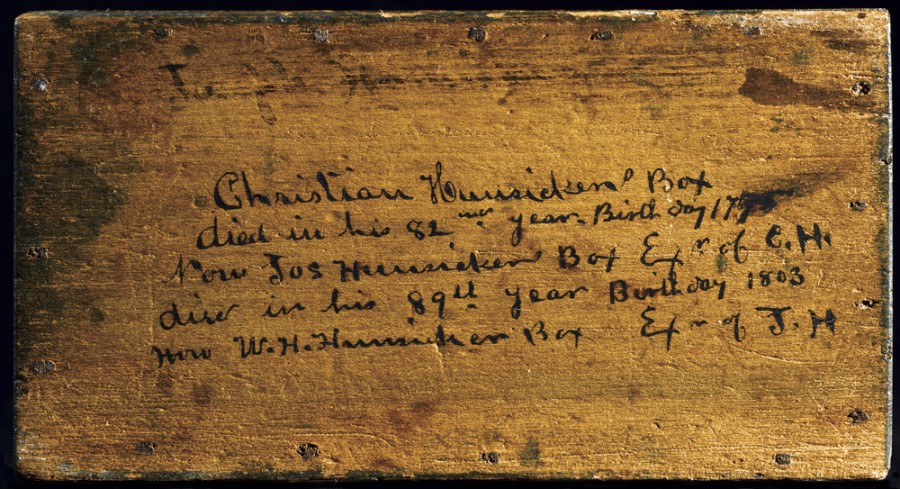 Christian Hunsickers Box
died in his 82nd year. Birth day
Now Jos Hunsicker Box Exr of C.H.
died in his 89th year Birthday 1803
now W.H. Hunsicker Box Exr of J.H